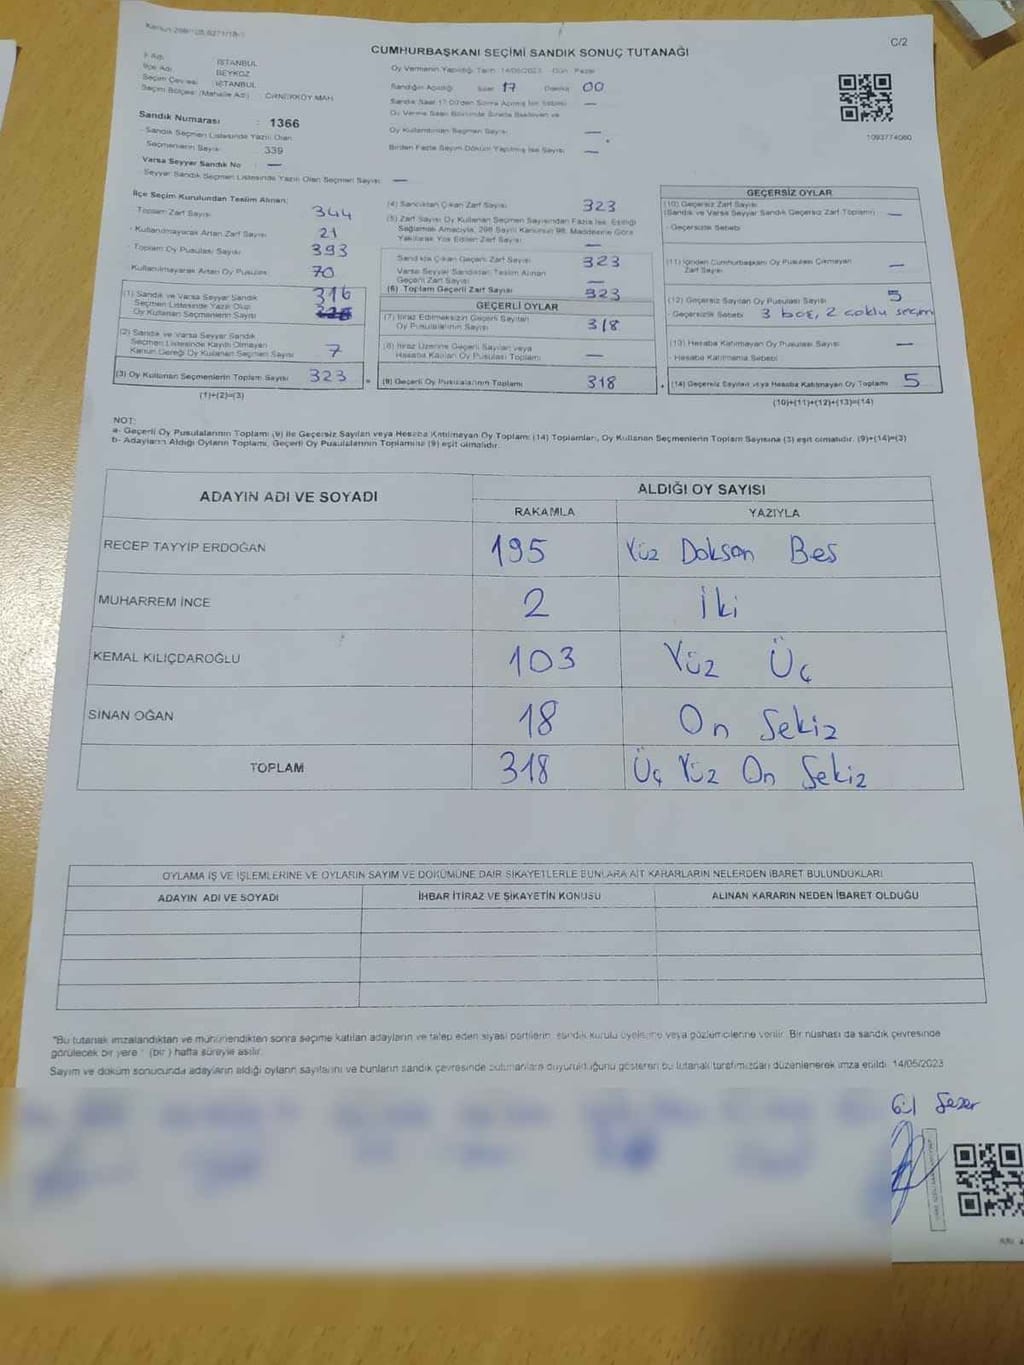 C/2
CUMHURBAŞKANI SEÇİMİ SANDIK SONUÇ TUTANAĞI
İl Adı İSTANBUL
İlçe Adı BEYKOZ
Seçim Çevresi İSTANBUL
Seçim Bölgesi (Mahalle Adı) ÖRNEKKÖY MAH.
Oy Vermenin Yapıldığı Tarih 14/05/2023 Gün Pazar
Sandığın Açıldığı Saat 17 Dakika 00
Sandık Numarası : 1366
Sandık Seçmen Listesinde Yazılı Olan
Seçmenlerin Sayısı 339
Varsa Seyyar Sandık No : —
Seyyar Sandık Listesinde Yazılı Olan Seçmen Sayısı —
Oy Kullandırılan Seçmen Sayısı —
Birden Fazla Sayım Döküm Yapılmış İse Sayısı —
1093774060
İlçe Seçim Kurulundan Teslim Alınan;
Toplam Zarf Sayısı 344
Kullanılmayarak Artan Zarf Sayısı 21
Toplam Oy Pusulası Sayısı 393
Kullanılmayarak Artan Oy Pusulası 70
(1) Sandık ve Varsa Seyyar Sandık
Seçmen Listesinde Yazılı Olup
Oy Kullanan Seçmenlerin Sayısı 316
(2) Sandık ve Varsa Seyyar Sandık
Seçmen Listesinde Kaydı Olmayan
Kanun Gereği Oy Kullanan Seçmen Sayısı 7
(3) Oy Kullanan Seçmenlerin Toplam Sayısı 323
(1)+(2)=(3)
(4) Sandıktan Çıkan Zarf Sayısı 323
(5) Zarf Sayısı Oy Kullanan Seçmen Sayısından Fazla İse, Eşitliği
Sağlamak Amacıyla, 298 Sayılı Kanunun 98. Maddesine Göre
Yakılarak Yok Edilen Zarf Sayısı —
Sandıkta Çıkan Geçerli Zarf Sayısı 323
Varsa Seyyar Sandıktan Teslim Alınan
Geçerli Zarf Sayısı —
(6) Toplam Geçerli Zarf Sayısı 323
GEÇERLİ OYLAR
(7) İtiraz Edilmeksizin Geçerli Sayılan
Oy Pusulalarının Sayısı 318
(8) İtiraz Üzerine Geçerli Sayılan veya
Hesaba Katılan Oy Pusulası Toplamı —
= (9) Geçerli Oy Pusulalarının Toplamı 318
GEÇERSİZ OYLAR
(10) Geçersiz Zarf Sayısı
(Sandık ve Varsa Seyyar Sandık Geçersiz Zarf Toplamı) —
Geçersizlik Sebebi
(11) İçinden Cumhurbaşkanı Oy Pusulası Çıkmayan
Zarf Sayısı —
(12) Geçersiz Sayılan Oy Pusulası Sayısı 5
Geçersizlik Sebebi 3 boş, 2 çoklu seçim
(13) Hesaba Katılmayan Oy Pusulası Sayısı —
Hesaba Katılmama Sebebi
+ (14) Geçersiz Sayılan veya Hesaba Katılmayan Oy Toplamı 5
(10)+(11)+(12)+(13)=(14)
NOT:
a- Geçerli Oy Pusulalarının Toplamı (9) ile Geçersiz Sayılan veya Hesaba Katılmayan Oy Toplamı (14) Toplamları, Oy Kullanan Seçmenlerin Toplam Sayısına (3) eşit olmalıdır. (9)+(14)=(3)
b- Adayların Aldığı Oyların Toplamı, Geçerli Oy Pusulalarının Toplamına (9) eşit olmalıdır.
ADAYIN ADI VE SOYADI ALDIĞI OY SAYISI
RAKAMLA YAZIYLA
RECEP TAYYİP ERDOĞAN 195 Yüz Doksan Beş
MUHARREM İNCE 2 İki
KEMAL KILIÇDAROĞLU 103 Yüz Üç
SİNAN OĞAN 18 On Sekiz
TOPLAM 318 Üç Yüz On Sekiz
OYLAMA İŞ VE İŞLEMLERİNE VE OYLARIN SAYIM VE DÖKÜMÜNE DAİR ŞİKAYETLERLE BUNLARA AİT KARARLARIN NELERDEN İBARET BULUNDUKLARI
ADAYIN ADI VE SOYADI İHBAR İTİRAZ VE ŞİKAYETİN KONUSU ALINAN KARARIN NEDEN İBARET OLDUĞU
"Bu tutanak imzalandıktan ve mühürlendikten sonra seçime katılan adayların ve talep eden siyasi partilerin sandık kurulu üyelerine veya gözlemcilerine verilir. Bir nüshası da sandık çevresinde
görülecek bir yere (bir) hafta süreyle asılır.
Sayım ve döküm sonucunda adayların aldığı oyların sayılarını ve bunların sandık çevresinde bulunanlara duyurulduğunu gösteren bu tutanak tarafımızdan düzenlenerek imza edildi. 14/05/2023
Gül Sezer